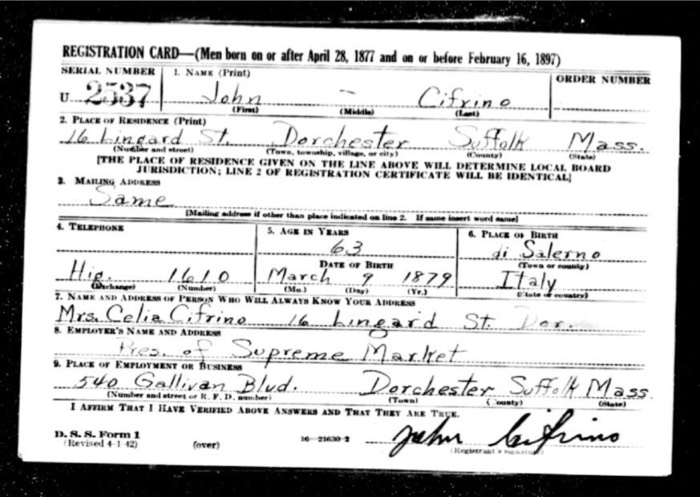 REGISTRATION CARD—(Men born on or after April 28, 1877 and on or before February 16, 1897)
SERIAL NUMBER 1. NAME (Print) ORDER NUMBER
U 2537 John – Cifrino
(First) (Middle) (Last)
2. PLACE OF RESIDENCE (Print)
16 Lingard St. Dorchester Suffolk Mass.
(Number and street) (Town, township, village, or city) (County) (State)
[THE PLACE OF RESIDENCE GIVEN ON THE LINE ABOVE WILL DETERMINE LOCAL BOARD
JURISDICTION; LINE 2 OF REGISTRATION CERTIFICATE WILL BE IDENTICAL]
3. MAILING ADDRESS
Same
[Mailing address if other than place indicated on line 2. If same insert word same]
4. TELEPHONE 5. AGE IN YEARS 6. PLACE OF BIRTH
63 di Salerno
DATE OF BIRTH (Town or county)
Hig. 1610 March 9 1879 Italy
(Exchange) (Number) (Mo.) (Day) (Yr.) (State or country)
7. NAME AND ADDRESS OF PERSON WHO WILL ALWAYS KNOW YOUR ADDRESS
Mrs. Celia Cifrino 16 Lingard St. Dor.
8. EMPLOYER'S NAME AND ADDRESS
Pres. of Supreme Market
9. PLACE OF EMPLOYMENT OR BUSINESS
540 Gallivan Blvd. Dorchester Suffolk Mass.
(Number and street or R. F. D. number) (Town) (County) (State)
I AFFIRM THAT I HAVE VERIFIED ABOVE ANSWERS AND THAT THEY ARE TRUE.
D. S. S. Form 1
(Revised 4-1-42) (over) 16—21630-2 John Cifrino
(Registrant's signature)